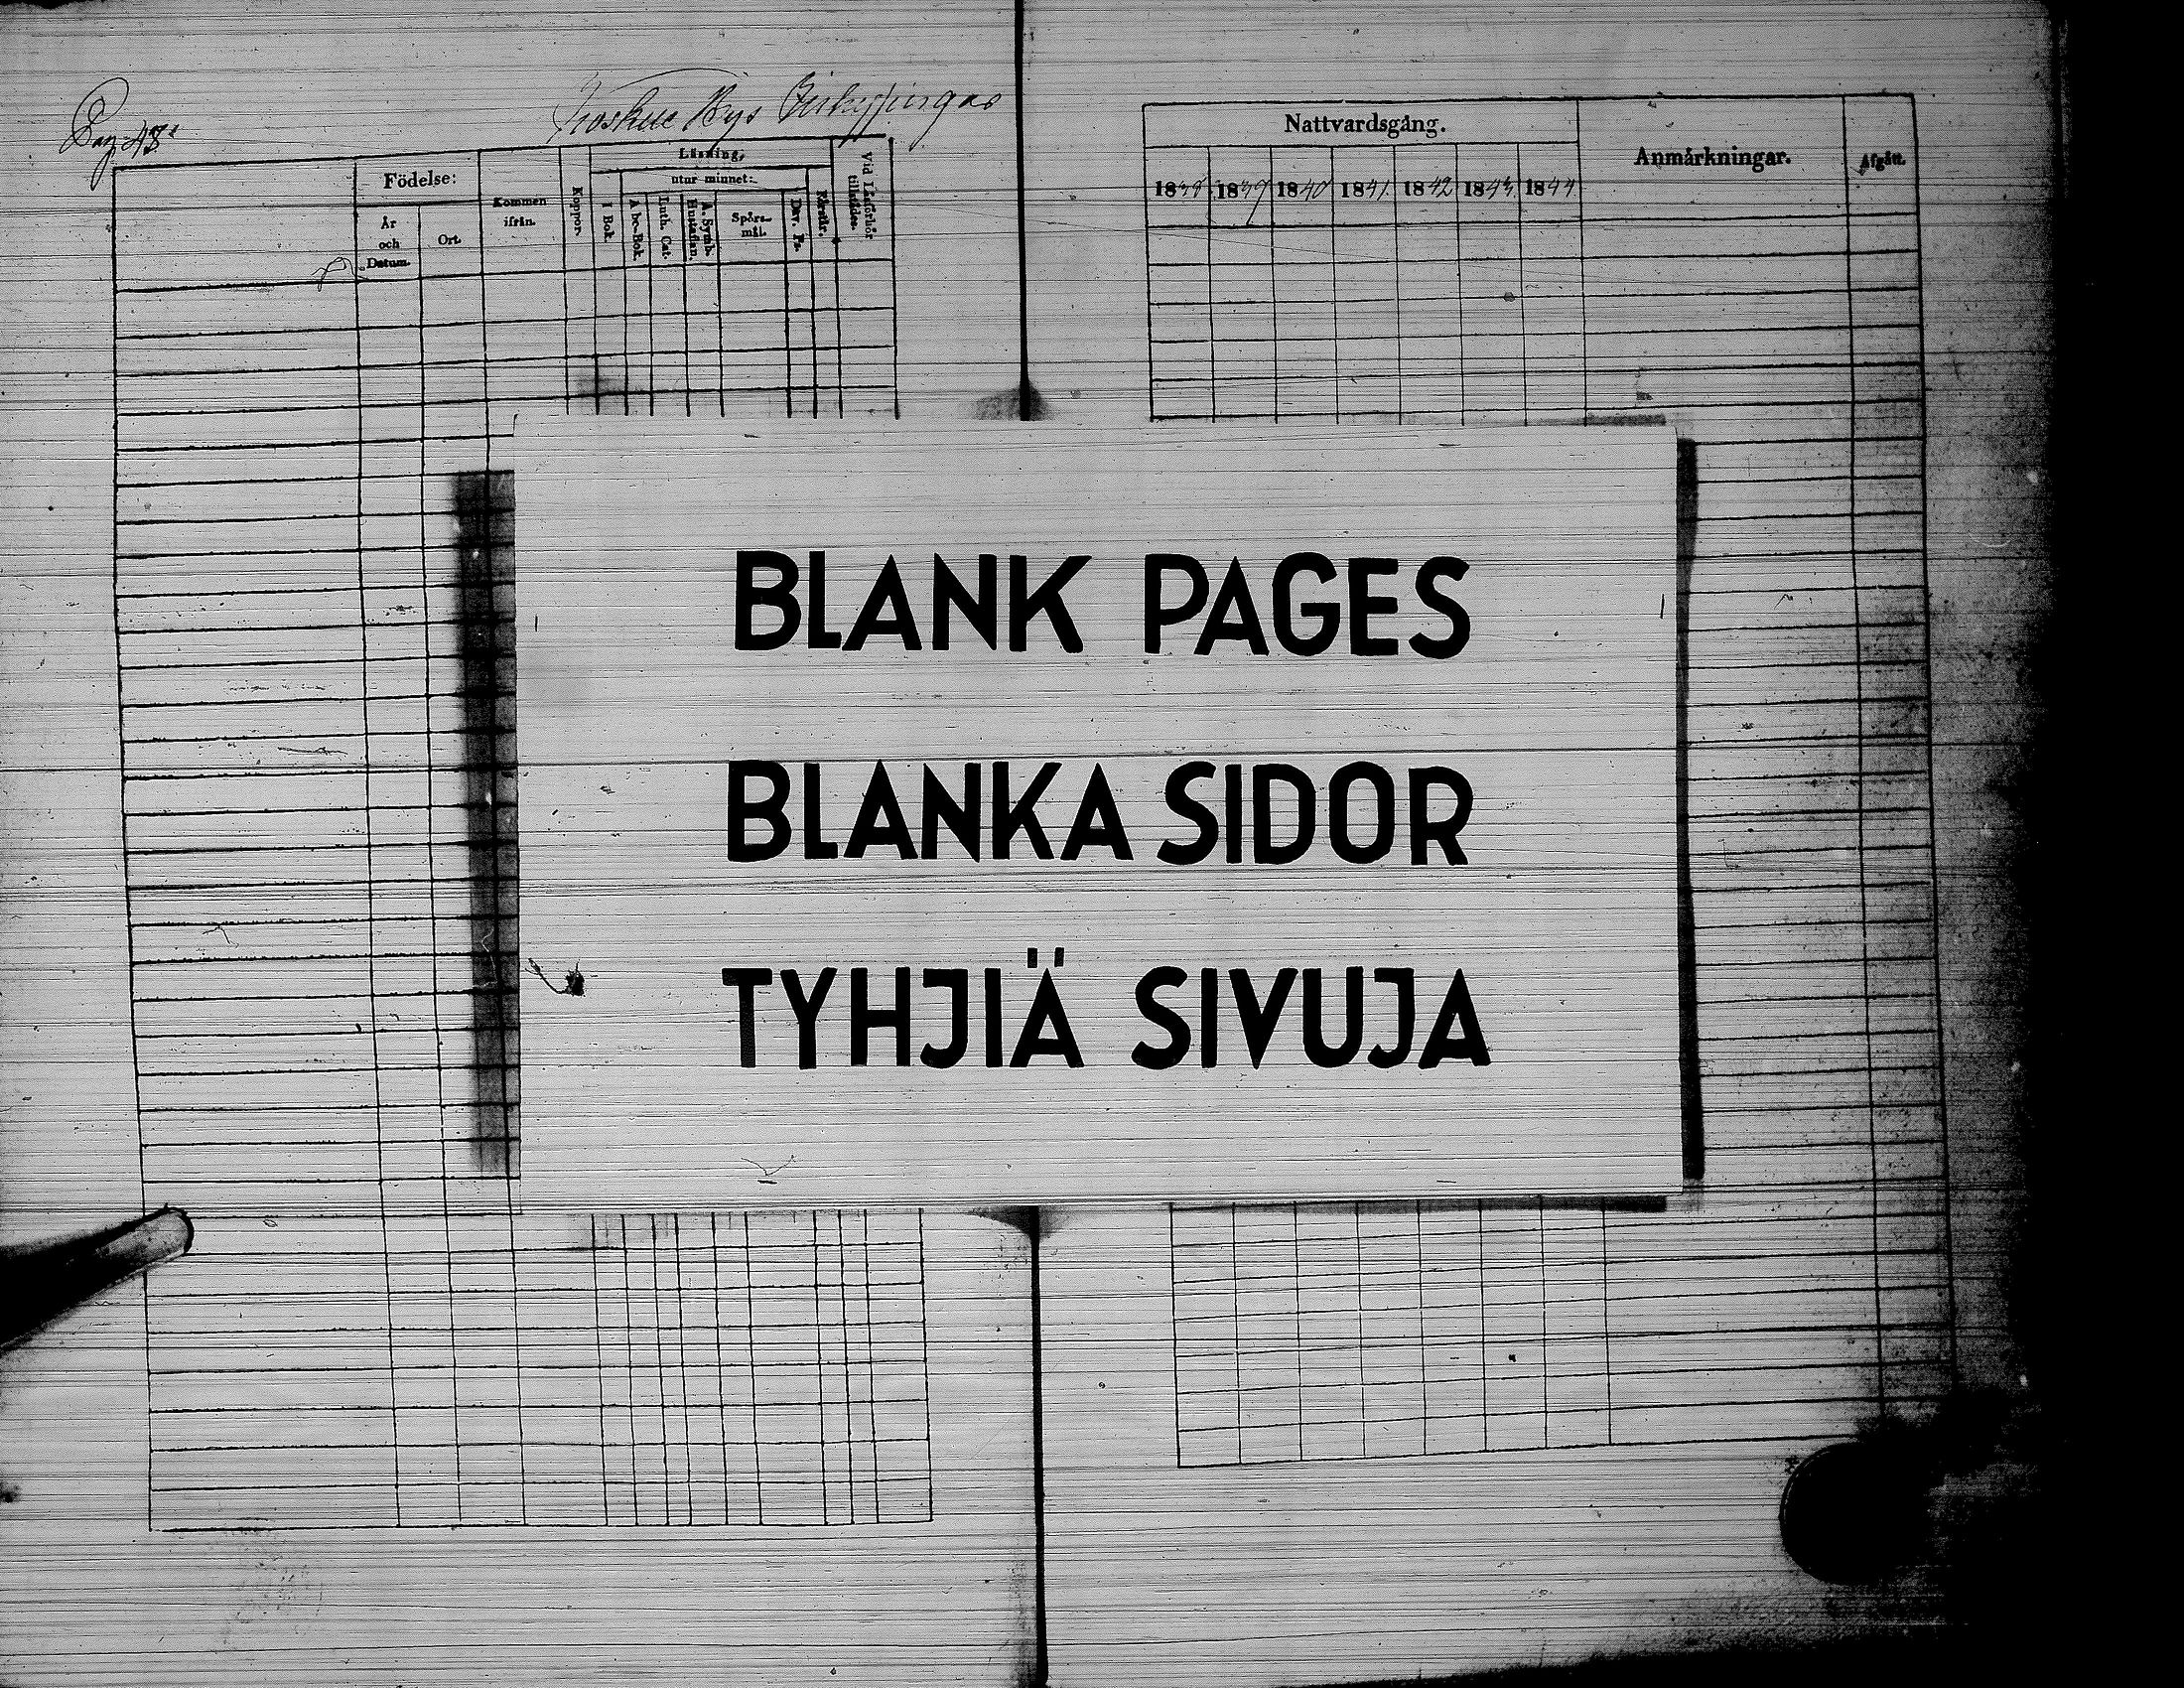 Pag. 48.
Bys
Födelse:
År
och
Datum.
Ort.
Kommen
ifrån.
Koppor.
Läsning,
utur minnet:
I Bok.
A be-Bok.
Luth. Cat.
A. Symb.
Hustaflan.
Spörs-
mål.
Dav. Ps.
Förstår.
Vid Läsförhör
tillstädes.
Nattvardsgång.
1838 1839 1840 1841. 1842 1843. 1844
Anmärkningar.
Afgått.
BLANK PAGES
BLANKA SIDOR
TYHJIÄ SIVUJA